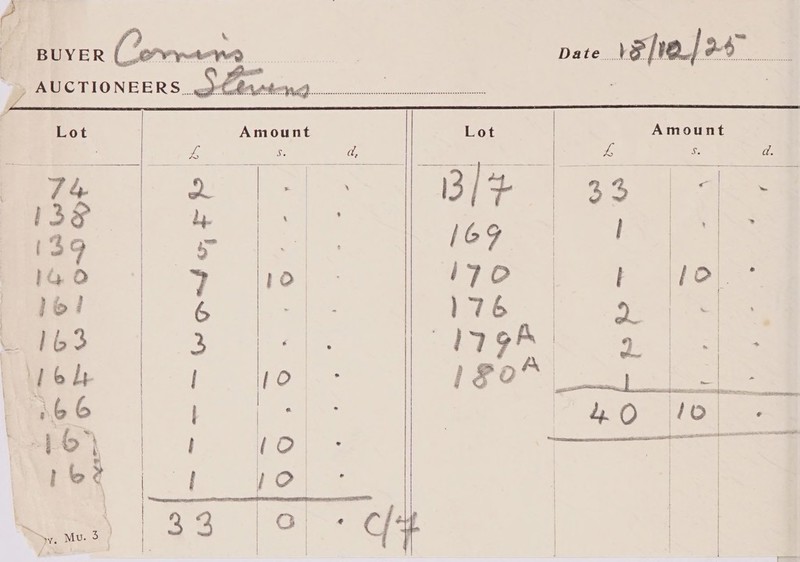 BUYER Comins Date 18/12/25
AUCTIONEERS Stevens
Lot Amount Lot Amount
£ s. d, £ s. d.
74 2 . . B/7 33 - -
138 4 . . 169 1 . .
139 5 . . 170 1 10 .
140 7 10 . 176 2 - -
161 6 - - 179A 2 . .
163 3 . . 180A 1 - -
164 1 10 . 40 10 .
166 1 . .
167 1 10 .
168 1 10 .
33 0 . C/7
Mu. 3